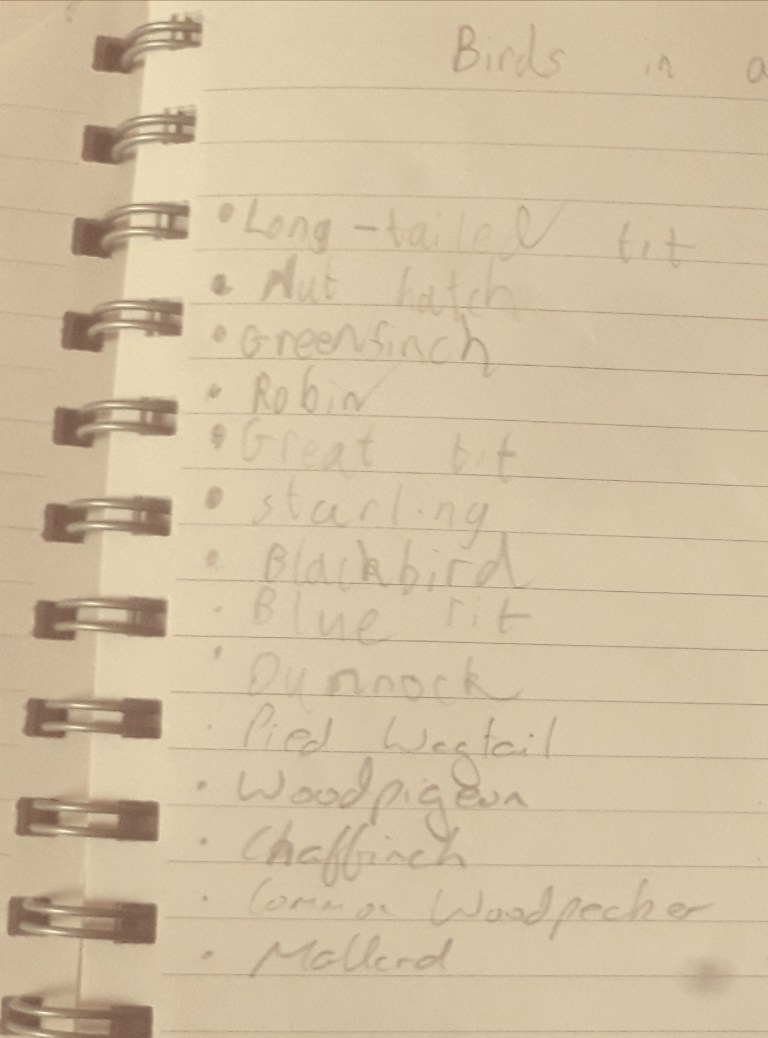 Birds in a
• Long-tailed tit
• Nut hatch
• Greenfinch
• Robin
• Great tit
• starling
• Blackbird
• Blue Tit
• Dunnock
• Pied Wagtail
• Woodpigeon
• Chaffinch
• Common Woodpecker
• Mallard